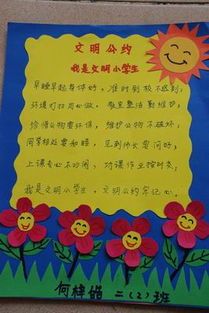 文明公约
我是文明小学生
早睡早起身体好，准时到校不迟到，
环境打扫用心做，教室整洁勤维护，
珍惜公物爱环保，维护公物不破坏，
同学相处要和睦，见到师长要问好，
上课专心不吵闹，功课作业按时交，
我是文明小学生，文明公约牢记心。
何梓皓 二（2）班